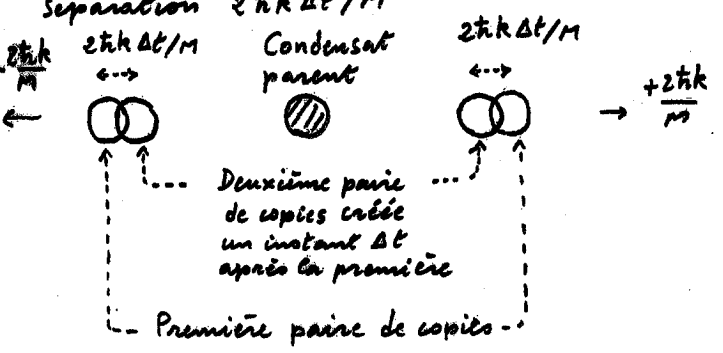 Séparation 2ħkΔt/M
-2ħk/M 2ħkΔt/M Condensat 2ħkΔt/M +2ħk/M
parent
Deuxième paire
de copies créée
un instant Δt
après la première
Première paire de copies